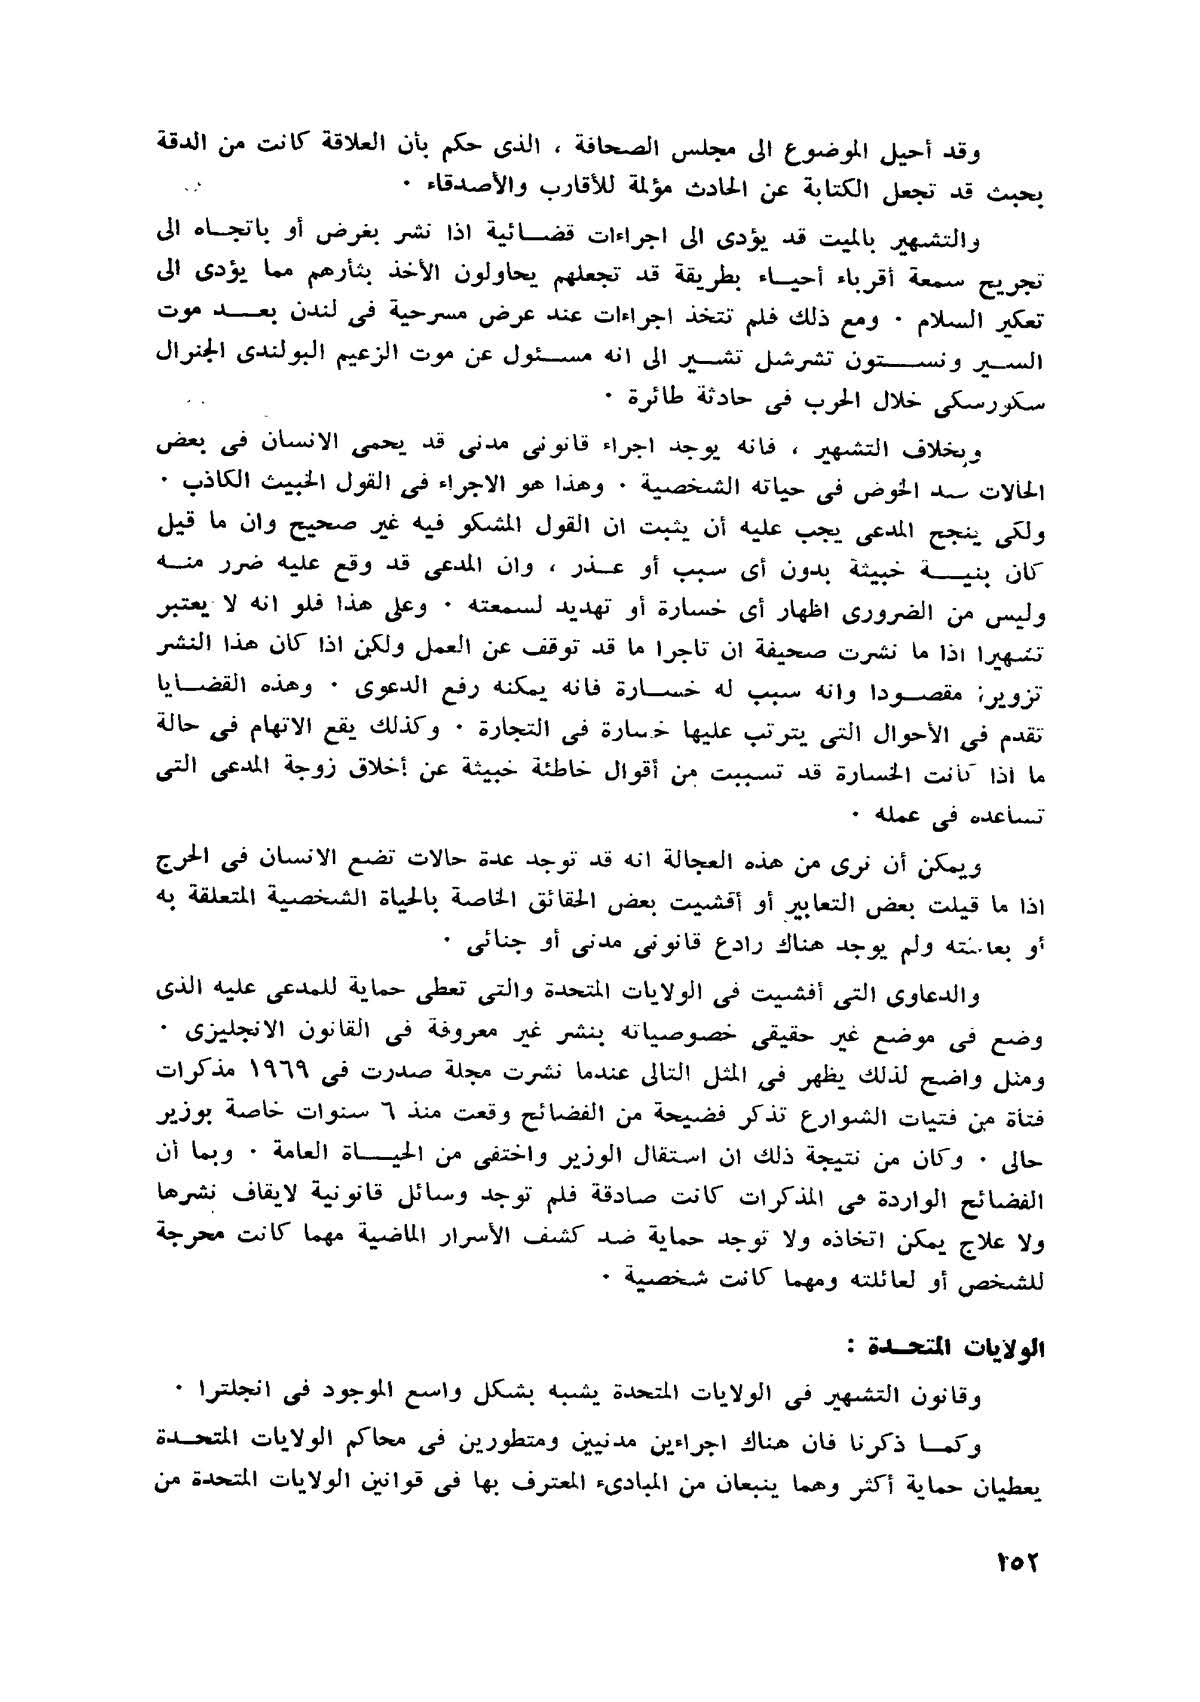 وقد أحيل الموضوع الى مجلس الصحافة ، الذى حكم بأن العلاقة كانت من الدقة
بحيث قد تجعل الكتابة عن الحادث مؤلمة للأقارب والأصدقاء ٠
والتشهير بالميت قد يؤدى الى اجراءات قضائية اذا نشر بغرض أو باتجاه الى
تجريح سمعة أقرباء أحياء بطريقة قد تجعلهم يحاولون الأخذ بثأرهم مما يؤدى الى
تعكير السلام ٠ ومع ذلك فلم تتخذ اجراءات عند عرض مسرحية فى لندن بعد موت
السير ونستون تشرشل تشير الى انه مسئول عن موت الزعيم البولندى الجنرال
سكورسكى خلال الحرب فى حادثة طائرة ٠
وبخلاف التشهير ، فانه يوجد اجراء قانونى مدنى قد يحمى الانسان فى بعض
الحالات ضد الخوض فى حياته الشخصية ٠ وهذا هو الاجراء فى القول الخبيث الكاذب ٠
ولكى ينجح المدعى يجب عليه أن يثبت ان القول المشكو فيه غير صحيح وان ما قيل
كان بنية خبيثة بدون أى سبب أو عذر ، وان المدعى قد وقع عليه ضرر منه
وليس من الضرورى اظهار أى خسارة أو تهديد لسمعته ٠ وعلى هذا فلو انه لا يعتبر
تشهيرا اذا ما نشرت صحيفة ان تاجرا ما قد توقف عن العمل ولكن اذا كان هذا النشر
تزويرا مقصودا وانه سبب له خسارة فانه يمكنه رفع الدعوى ٠ وهذه القضايا
تقدم فى الأحوال التى يترتب عليها خسارة فى التجارة ٠ وكذلك يقع الاتهام فى حالة
ما اذا كانت الخسارة قد تسببت من أقوال خاطئة خبيثة عن أخلاق زوجة المدعى التى
تساعده فى عمله ٠
ويمكن أن نرى من هذه العجالة انه قد توجد عدة حالات تضع الانسان فى الحرج
اذا ما قيلت بعض التعابير أو أفشيت بعض الحقائق الخاصة بالحياة الشخصية المتعلقة به
أو بعائلته ولم يوجد هناك رادع قانونى مدنى أو جنائى ٠
والدعاوى التى أفشيت فى الولايات المتحدة والتى تعطى حماية للمدعى عليه الذى
وضع فى موضع غير حقيقى خصوصياته بنشر غير معروفة فى القانون الانجليزى ٠
ومثل واضح لذلك يظهر فى المثل التالى عندما نشرت مجلة صدرت فى ١٩٦٩ مذكرات
فتاة من فتيات الشوارع تذكر فضيحة من الفضائح وقعت منذ ٦ سنوات خاصة بوزير
حالى ٠ وكان من نتيجة ذلك ان استقال الوزير واختفى من الحياة العامة ٠ وبما أن
الفضائح الواردة فى المذكرات كانت صادقة فلم توجد وسائل قانونية لايقاف نشرها
ولا علاج يمكن اتخاذه ولا توجد حماية ضد كشف الأسرار الماضية مهما كانت محرجة
للشخص أو لعائلته ومهما كانت شخصية ٠
الولايات المتحدة :
وقانون التشهير فى الولايات المتحدة يشبه بشكل واسع الموجود فى انجلترا ٠
وكما ذكرنا فان هناك اجراءين مدنيين ومتطورين فى محاكم الولايات المتحدة
يعطيان حماية أكثر وهما ينبعان من المبادىء المعترف بها فى قوانين الولايات المتحدة من
٢٥٢